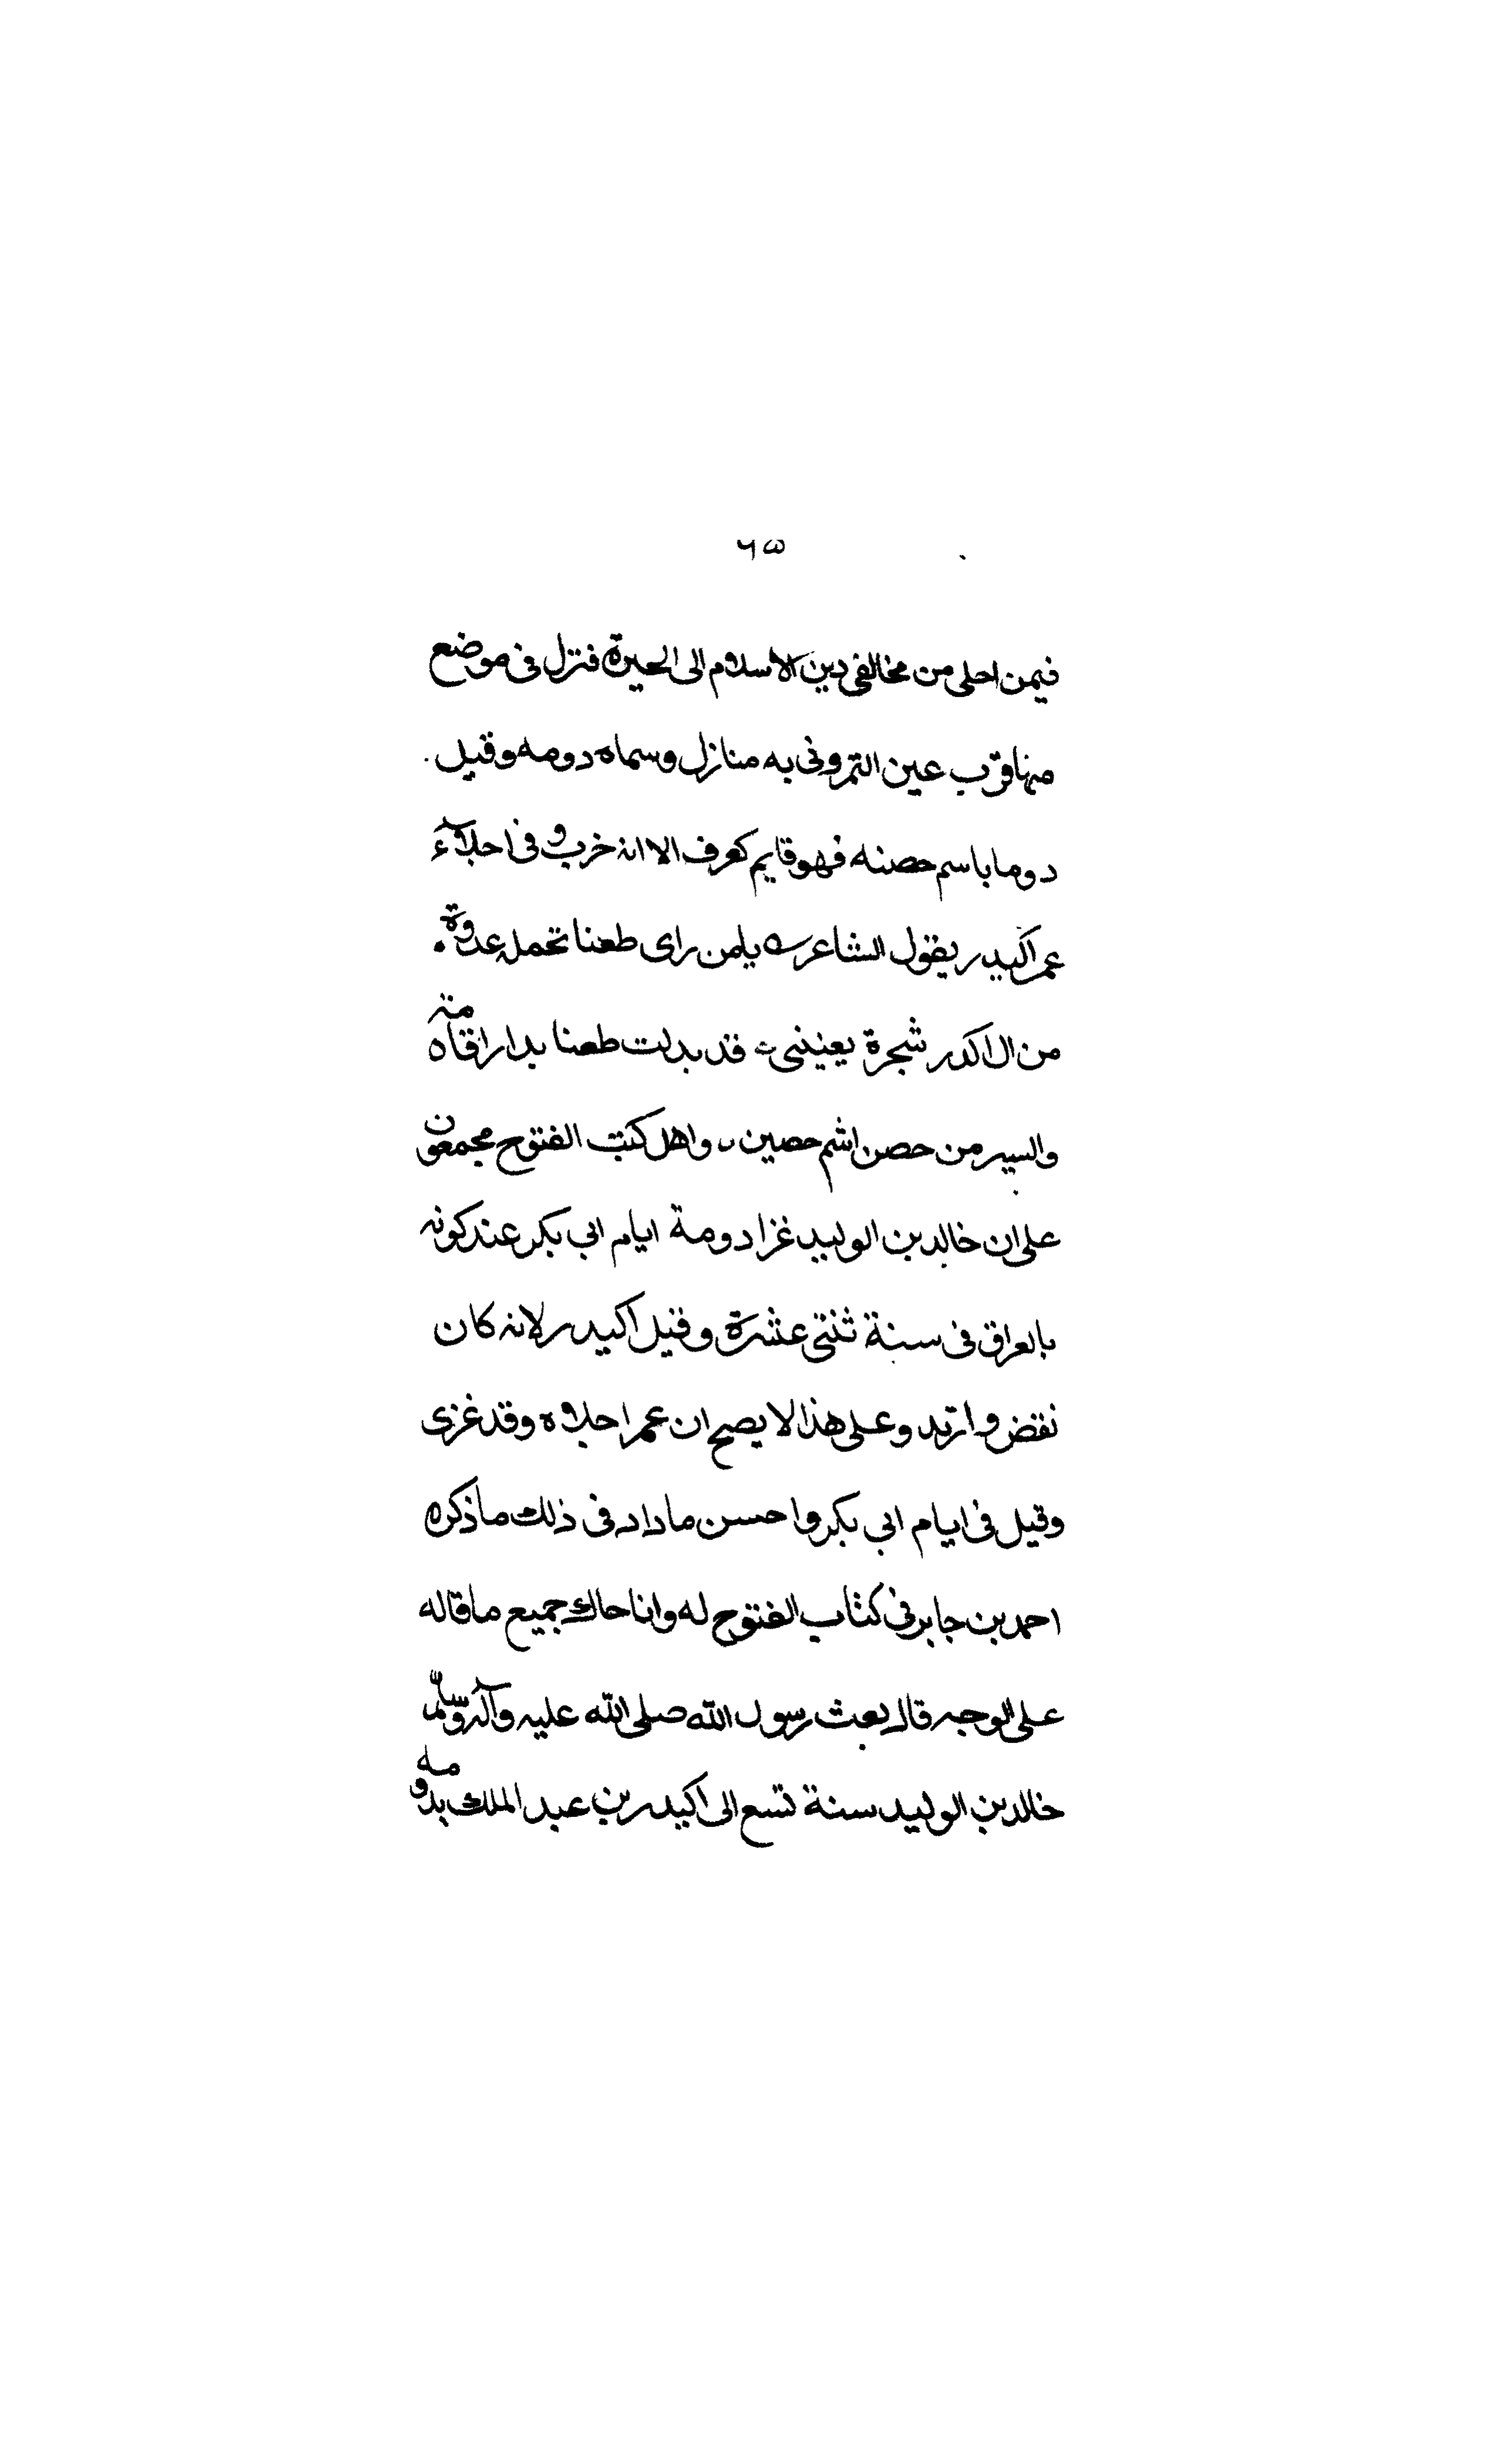 ٦٥
فيمن احلى من مخالفى دين الاسلام الى الحيرة فنزل فى موضع
منها قرب عين التمر وبنى به منازل وسماه دومه وقيل
دوما باسم حصنه فهو قايم كعرف الا انه خرب وفى احلاء
عمر اكيدر يقول الشاعر يا من راى طعنا تحمل عدوة
من ال اكدر شجرة يعنينى قد بدلت طعنا بدار اقامته
والسير من حصن اشم حصين واهل كتب الفتوح مجمعون
على ان خالد بن الوليد غزا دومة ايام ابى بكر عند كونه
بالعراق فى سنة ثنتى عشرة وقتل اكيدر لانه كان
نقض وارتد وعلى هذا لا يصح ان عمر احلاه وقد غزى
وقيل فى ايام ابى بكر واحسن ما دار فى ذلك ما ذكره
احمد بن جابر فى كتاب الفتوح له وانا حاك جميع ما قاله
على الوجه قال بعث رسول الله صلى الله عليه وآله وسلم
خالد بن الوليد سنة تسع الى اكيدر بن عبد الملك بدومه